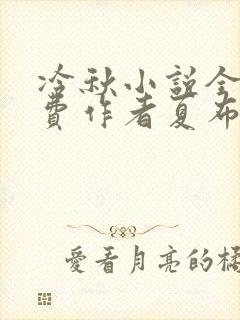 冷秋小説全
費作者夏布
愛看月亮的橘